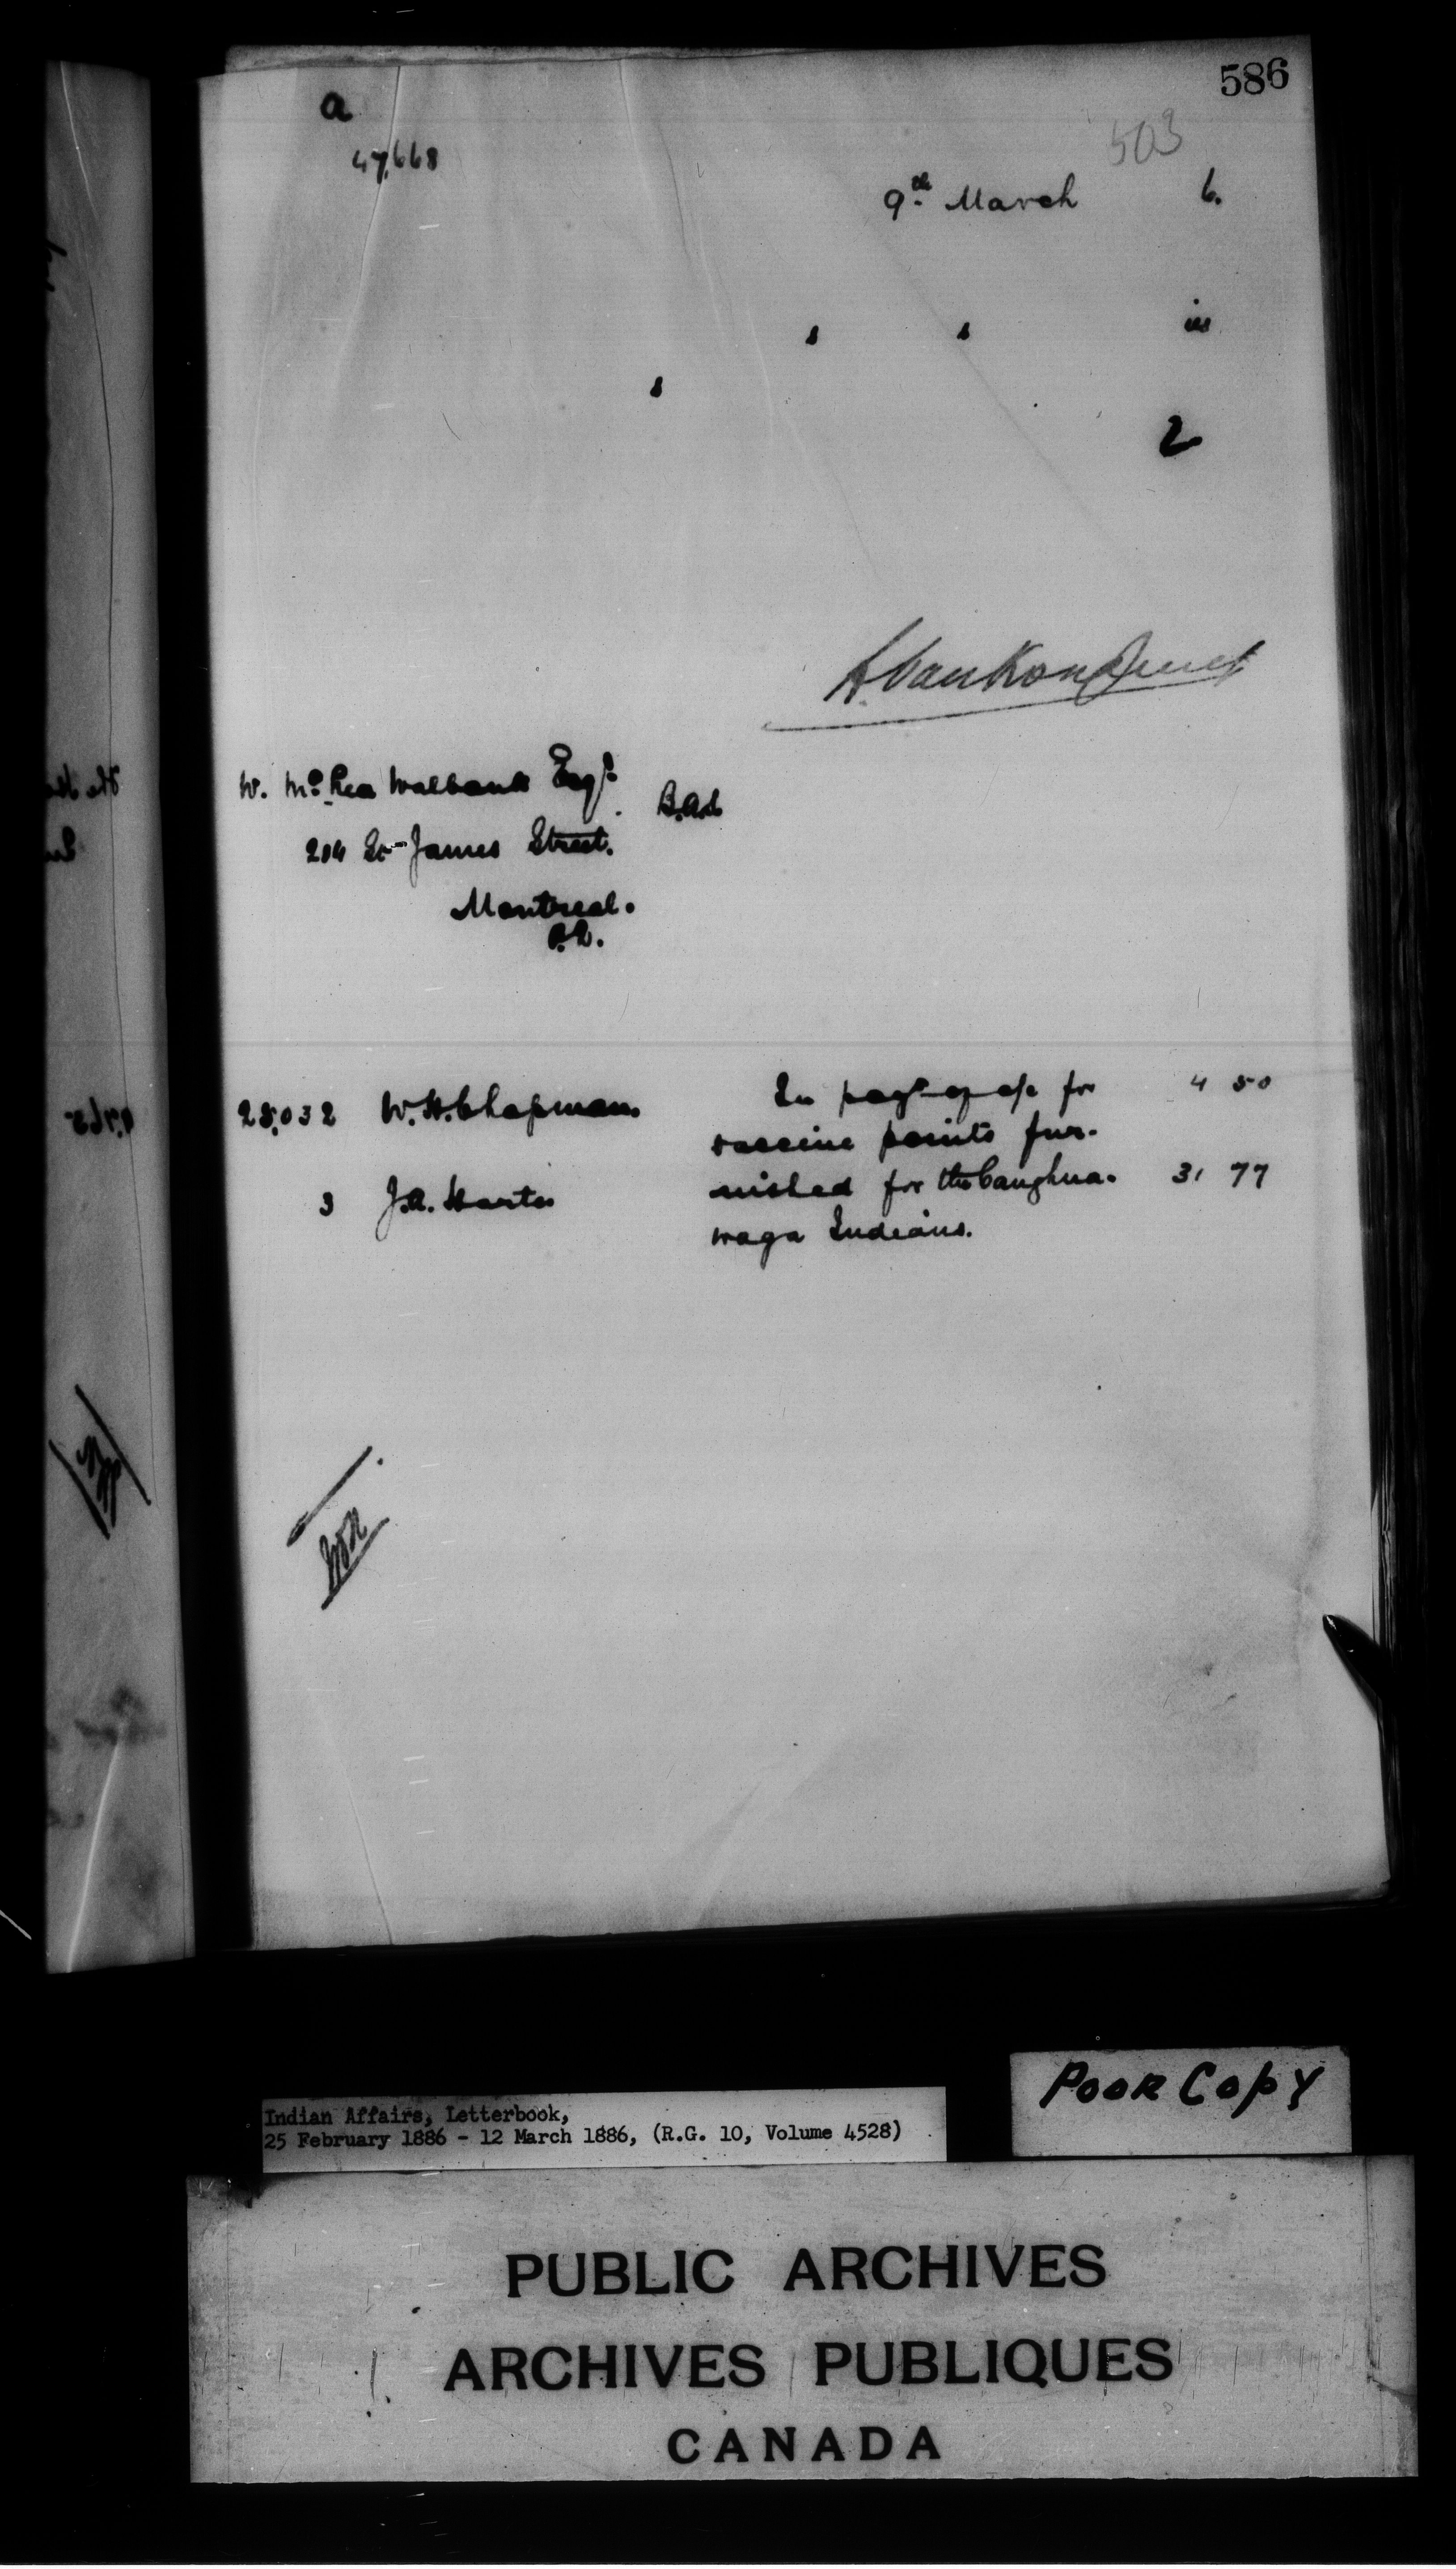 586
a
503
47,668
9th March 6.
s s in
s
2
A. VanKoughnet
W. McRea Walbank Esqr. B.A.Sc
204 St James Street.
Montreal.
P.Q.
28,032 W. H. Chapman. In payt of a/c for 4 50
vaccine points fur-
3 J.A. Harte nished for the Caughna- 31 77
waga Indians.
Poor Copy
Indian Affairs, Letterbook,
25 February 1886 - 12 March 1886, (R.G. 10, Volume 4528)
PUBLIC ARCHIVES
ARCHIVES PUBLIQUES
CANADA